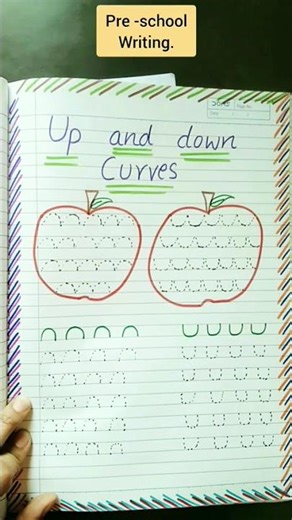 Pre -school
Writing.
Up and down
Curves